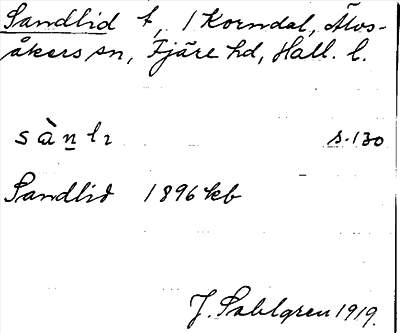 Sandlid t, 1 Korndal, Älvs-
åkers sn, Fjäre hd, Hall. l.
sànlı s. 130
Sandlid 1896 kb
J. Sahlgren 1919.